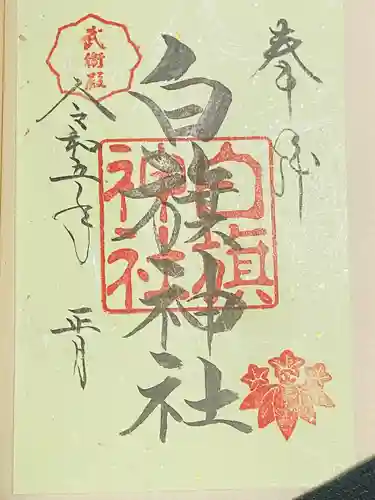 奉拝
白旗神社
白旗
神社
武衛殿
令和五年
正月